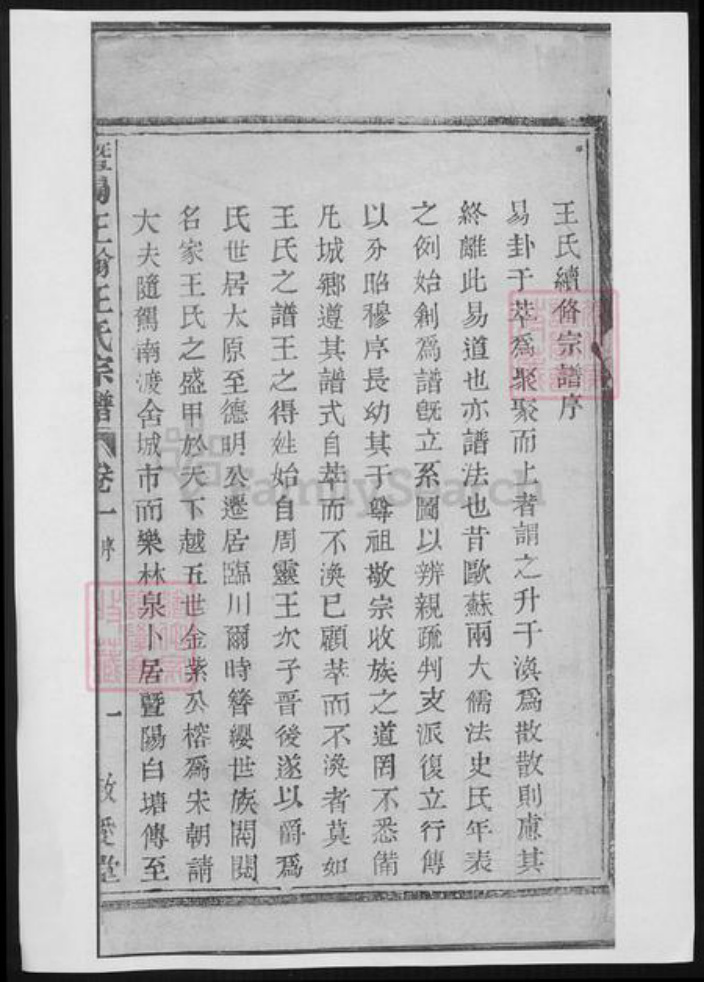 王氏續脩宗譜序
易卦于萃爲聚聚而上者謂之升于渙爲散散則慮其
終離此易道也亦譜法也昔歐蘇兩大儒法史氏年表
之例始創爲譜旣立系圖以辨親疏判支派復立行傳
以分昭穆序長幼其于尊祖敬宗收族之道罔不悉備
凡城鄉遵其譜式自萃而不渙已顧萃而不渙者莫如
王氏之譜王之得姓始自周靈王次子晉後遂以爵爲
氏世居太原至德明公遷居臨川爾時簪纓世族閥閱
名家王氏之盛甲於天下越五世金紫公榕爲宋朝請
大夫隨駕南渡舍城市而樂林泉卜居暨陽白塘傳至
暨陽王氏宗譜 卷一 序 一 敬愛堂
FamilySearch